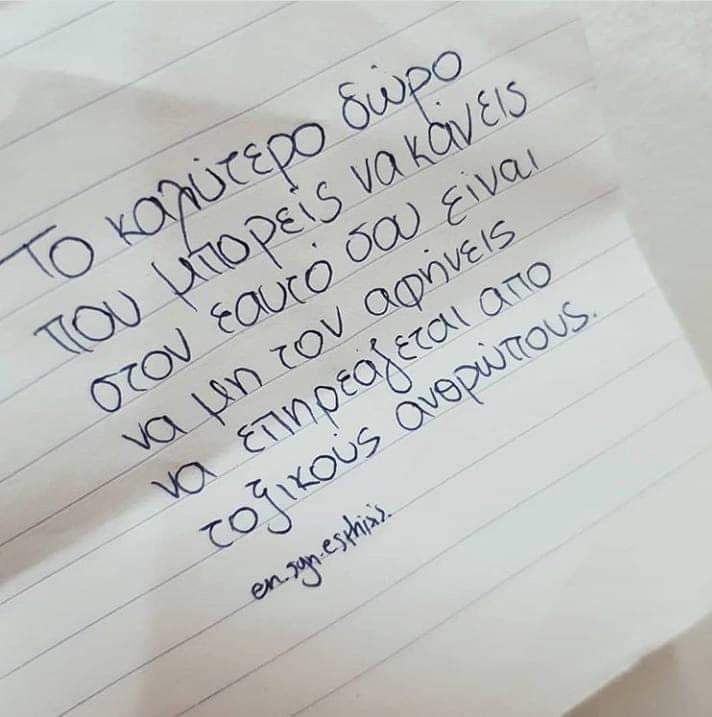 Το καλύτερο δώρο
που μπορείς να κάνεις
στον εαυτό σου είναι
να μη τον αφήνεις
να επηρεάζεται απο
τοξικούς ανθρώπους.
en.syn.esthisis.